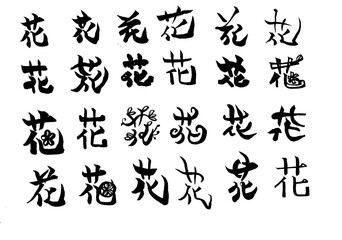 花 花 花 花 花 花
花 花 花 花 花 花
花 花 花 花 花 花
花 花 花 花 花 花